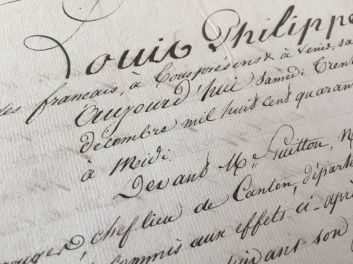 Louis Philippe
des français, à tous présens & à venir, sa
Aujourd'hui samedi trent
décembre mil huit cent quaran
à Midi.
Devant Me. Guitton, N
chef-lieu de Canton, départe
commis aux effets ci-apr
son